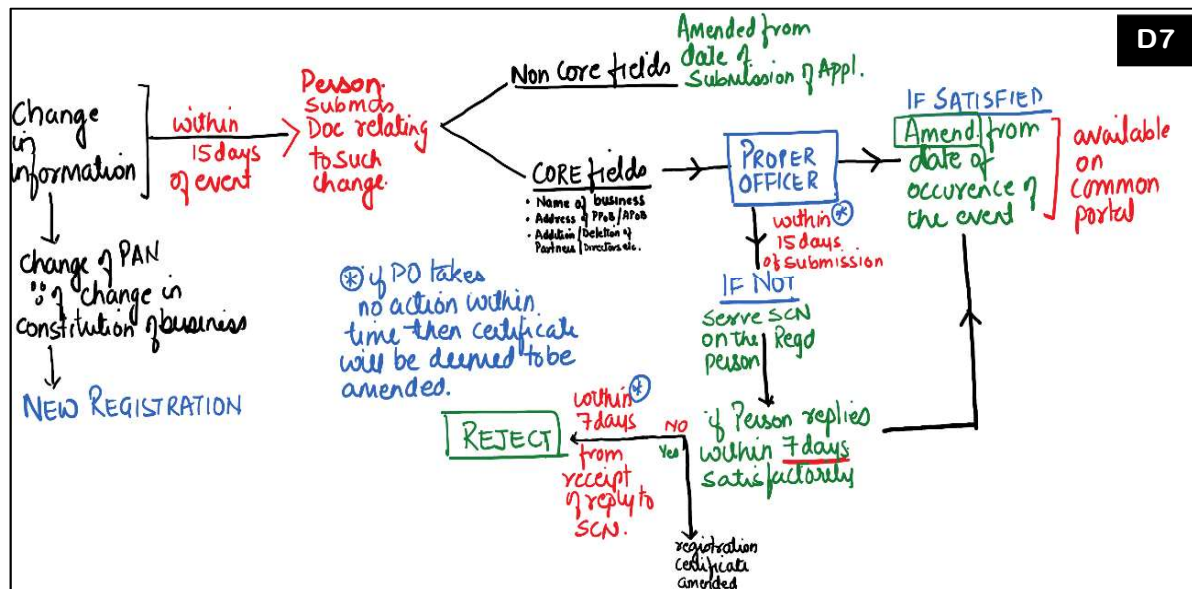 D7
Change
in
information
within
15 days
of event
Person
submits
Doc relating
to such
change.
Non Core fields
Amended from
date of
Submission of Appl.
CORE fields
• Name of business
• Address of PPoB/APoB
• Addition/Deletion of
Partners/Directors etc.
PROPER
OFFICER
IF SATISFIED
Amend. from
date of
occurence of
the event
available
on
common
portal
within *
15 days
of submission
IF NOT
serve SCN
on the Regd
person
if Person replies
within 7 days
satisfactorely
NO
Yes
within *
7 days
from
receipt
of reply to
SCN.
REJECT
registration
certificate
amended
* if PO takes
no action within
time then certificate
will be deemed to be
amended.
change of PAN
∵ of change in
constitution of business
NEW REGISTRATION